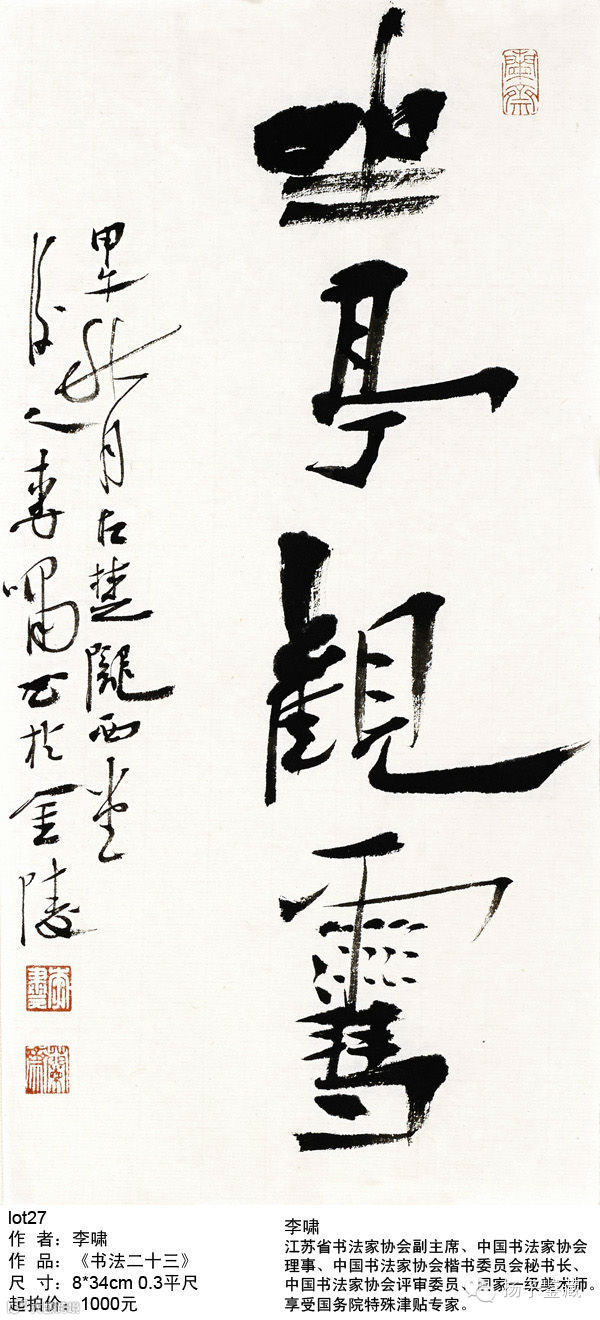 坐亭觀雪
甲午秋月古楚隴西堂
後人李嘯書於金陵
lot27
作 者：李啸
作 品：《书法二十三》
尺 寸：8*34cm 0.3平尺
起拍价： 1000元
李啸
江苏省书法家协会副主席、中国书法家协会
理事、中国书法家协会楷书委员会秘书长、
中国书法家协会评审委员、国家一级美术师。
享受国务院特殊津贴专家。
扬子鉴藏